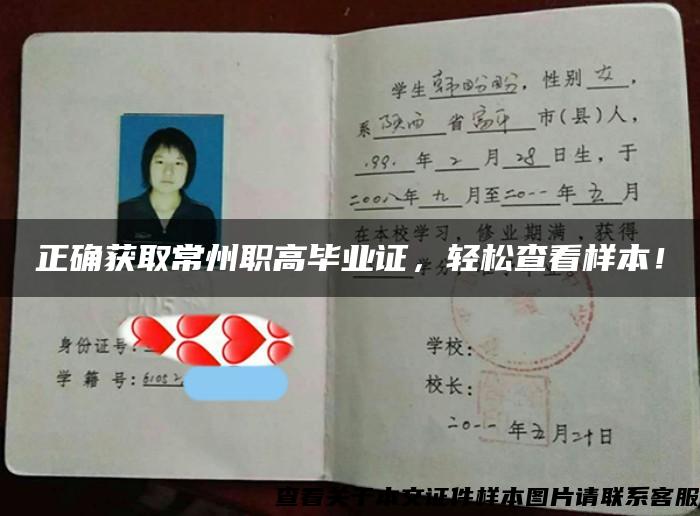 学生韩盼盼，性别女，
系陕西省富平市(县)人，
1991年2月28日生，于
二00八年九月至二0一一年五月
在本校学习，修业期满，获得
正确获取常州职高毕业证，轻松查看样本！
学分
身份证号:
学校:
学籍号:61052
校长:
二0一一年五月二十日
查看关于本文证件样本图片请联系客服